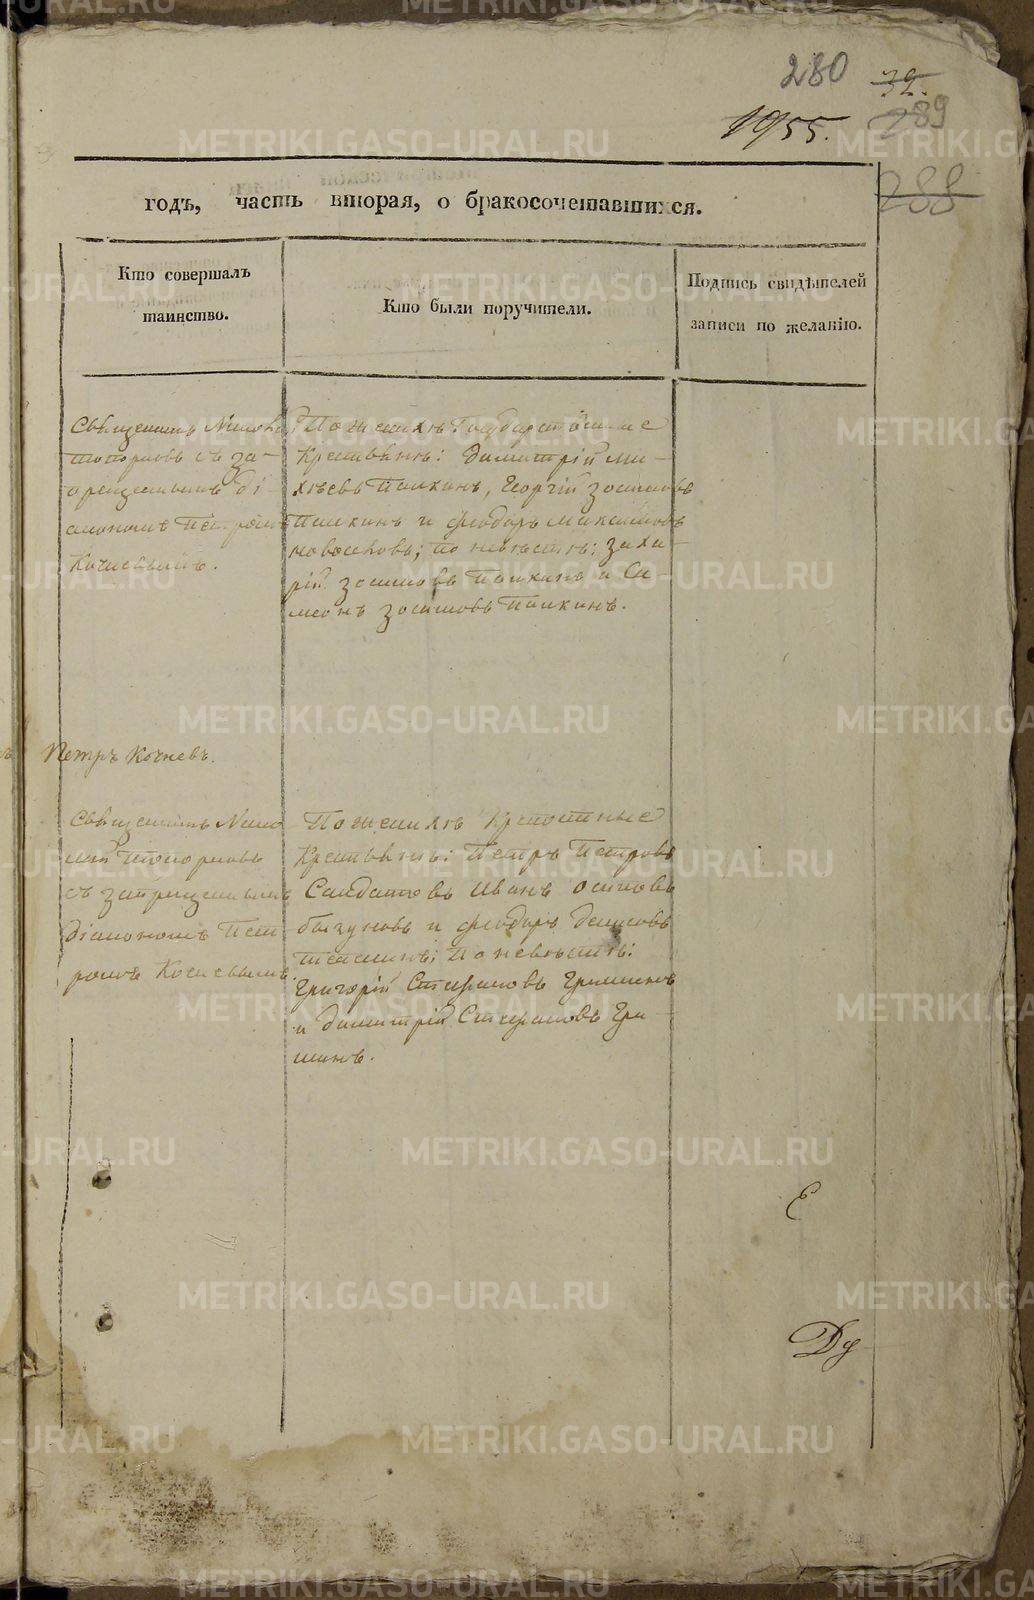 280
39.
1955.
289
288
годъ, часть вторая, о бракосочетавшихся.
Кто совершалъ
таинство.
Кто были поручители.
Подпись свидѣтелей
записи по желанію.
Священникъ Николай
Топорковъ съ за-
прещеннымъ ді-
акономъ Петромъ
Кочневымъ.
По женихѣ Государственные
Крестьяне: Димитрій Ми-
хѣевъ Палкинъ, Георгій Зосимовъ
Палкинъ и Феодоръ Максимовъ
Новоселовъ; по невѣстѣ: Заха-
рій Зосимовъ Палкинъ и Си-
меонъ Зосимовъ Палкинъ.
Петръ Кочневъ.
Священникъ Нико
лай Топорковъ
съ запрещеннымъ
діакономъ Пет
ромъ Кочневымъ.
По женихѣ Крепостные
Крестьяне: Петръ Петровъ
Солдатовъ Иванъ Осиповъ
и Феодоръ Денисовъ
по невѣстѣ:
Григорій Стефановъ Гришинъ
и Димитрій Стефановъ Гри-
шинъ.
METRIKI.GASO-URAL.RU